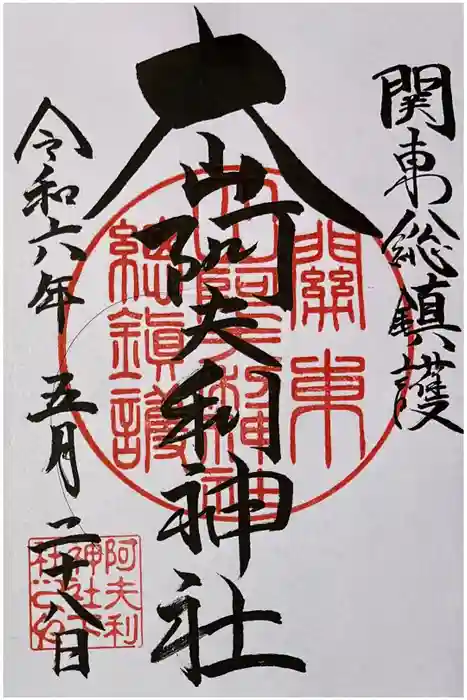 関東総鎮護
大山阿夫利神社
令和六年五月二十八日
關東
大山阿夫利神社
總鎮護
阿夫利
神社下
社